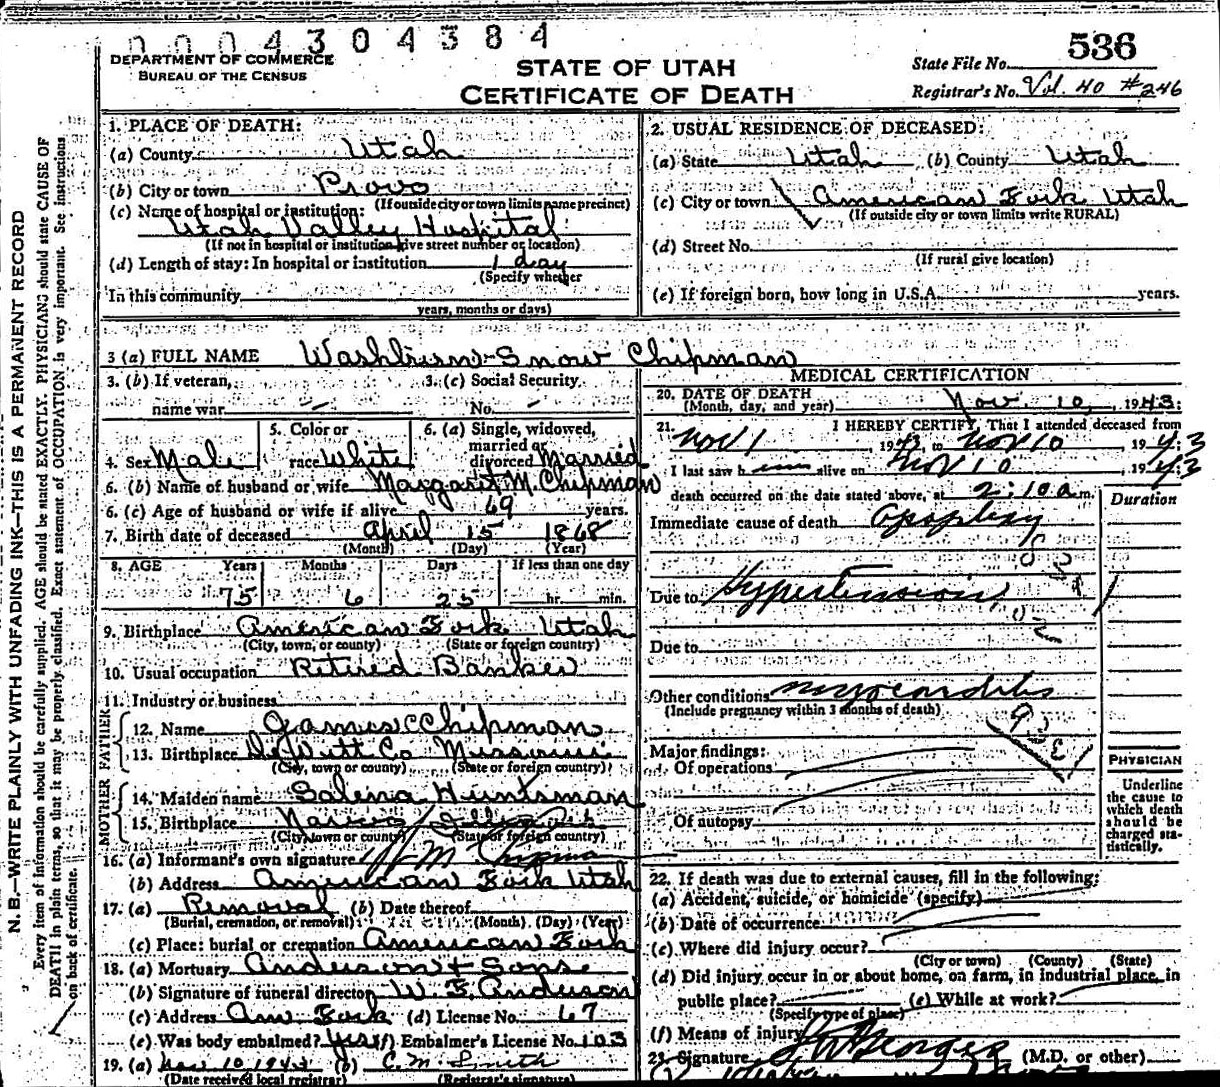 0004304384
DEPARTMENT OF COMMERCE
BUREAU OF THE CENSUS
STATE OF UTAH
CERTIFICATE OF DEATH
State File No. 536
Registrar's No. Vol. 40 #246
N. B.—WRITE PLAINLY WITH UNFADING INK—THIS IS A PERMANENT RECORD
Every item of information should be carefully supplied. AGE should be stated EXACTLY. PHYSICIAN should state CAUSE OF
DEATH in plain terms, so that it may be properly classified. Exact statement of OCCUPATION is very important. See instructions
on back of certificate.
1. PLACE OF DEATH:
(a) County Utah
(b) City or town Provo
(If outside city or town limits name precinct)
(c) Name of hospital or institution:
Utah Valley Hospital
(If not in hospital or institution give street number or location)
(d) Length of stay: In hospital or institution 1 day
(Specify whether
In this community
years, months or days)
2. USUAL RESIDENCE OF DECEASED:
(a) State Utah (b) County Utah
(c) City or town American Fork Utah
(If outside city or town limits write RURAL)
(d) Street No.
(If rural give location)
(e) If foreign born, how long in U.S.A. years.
3 (a) FULL NAME Washburn Snow Chipman
3. (b) If veteran, 3. (c) Social Security
name war - No. -
4. Sex Male 5. Color or race White 6. (a) Single, widowed, married or divorced Married
6. (b) Name of husband or wife Margaret M. Chipman
6. (c) Age of husband or wife if alive 69 years.
7. Birth date of deceased April 15 1868
(Month) (Day) (Year)
8. AGE Years Months Days If less than one day
75 6 25 hr. min.
9. Birthplace American Fork Utah
(City, town, or county) (State or foreign country)
10. Usual occupation Retired Banker
11. Industry or business
FATHER
12. Name James Chipman
13. Birthplace DeWitt Co Missouri
(City, town or county) (State or foreign country)
MOTHER
14. Maiden name Salena Huntsman
15. Birthplace
(City, town or county) (State or foreign country)
16. (a) Informant's own signature M Chipman
(b) Address American Fork Utah
17. (a) Removal (b) Date thereof
(Burial, cremation, or removal) (Month) (Day) (Year)
(c) Place: burial or cremation American Fork
18. (a) Mortuary Anderson & Sons
(b) Signature of funeral director W. E. Anderson
(c) Address Am. Fork (d) License No. 67
(e) Was body embalmed? Yes (f) Embalmer's License No. 103
19. (a) Nov 10 1943 (b) C. M. Smith
(Date received local registrar) (Registrar's signature)
MEDICAL CERTIFICATION
20. DATE OF DEATH
(Month, day, and year) Nov. 10, 1943
21. I HEREBY CERTIFY, That I attended deceased from
Nov 1 1943 to Nov 10 1943
I last saw him alive on Nov 10 1943
death occurred on the date stated above, at 2:10 a m.
Duration
Immediate cause of death Apoplexy
Due to Hypertension
Due to
Other conditions myocarditis
(Include pregnancy within 3 months of death)
Major findings:
Of operations
Of autopsy
PHYSICIAN
Underline
the cause to
which death
should be
charged sta-
tistically.
22. If death was due to external causes, fill in the following:
(a) Accident, suicide, or homicide (specify)
(b) Date of occurrence
(c) Where did injury occur?
(City or town) (County) (State)
(d) Did injury occur in or about home, on farm, in industrial place, in
public place? (e) While at work?
(Specify type of place)
(f) Means of injury
23. Signature (M.D. or other)